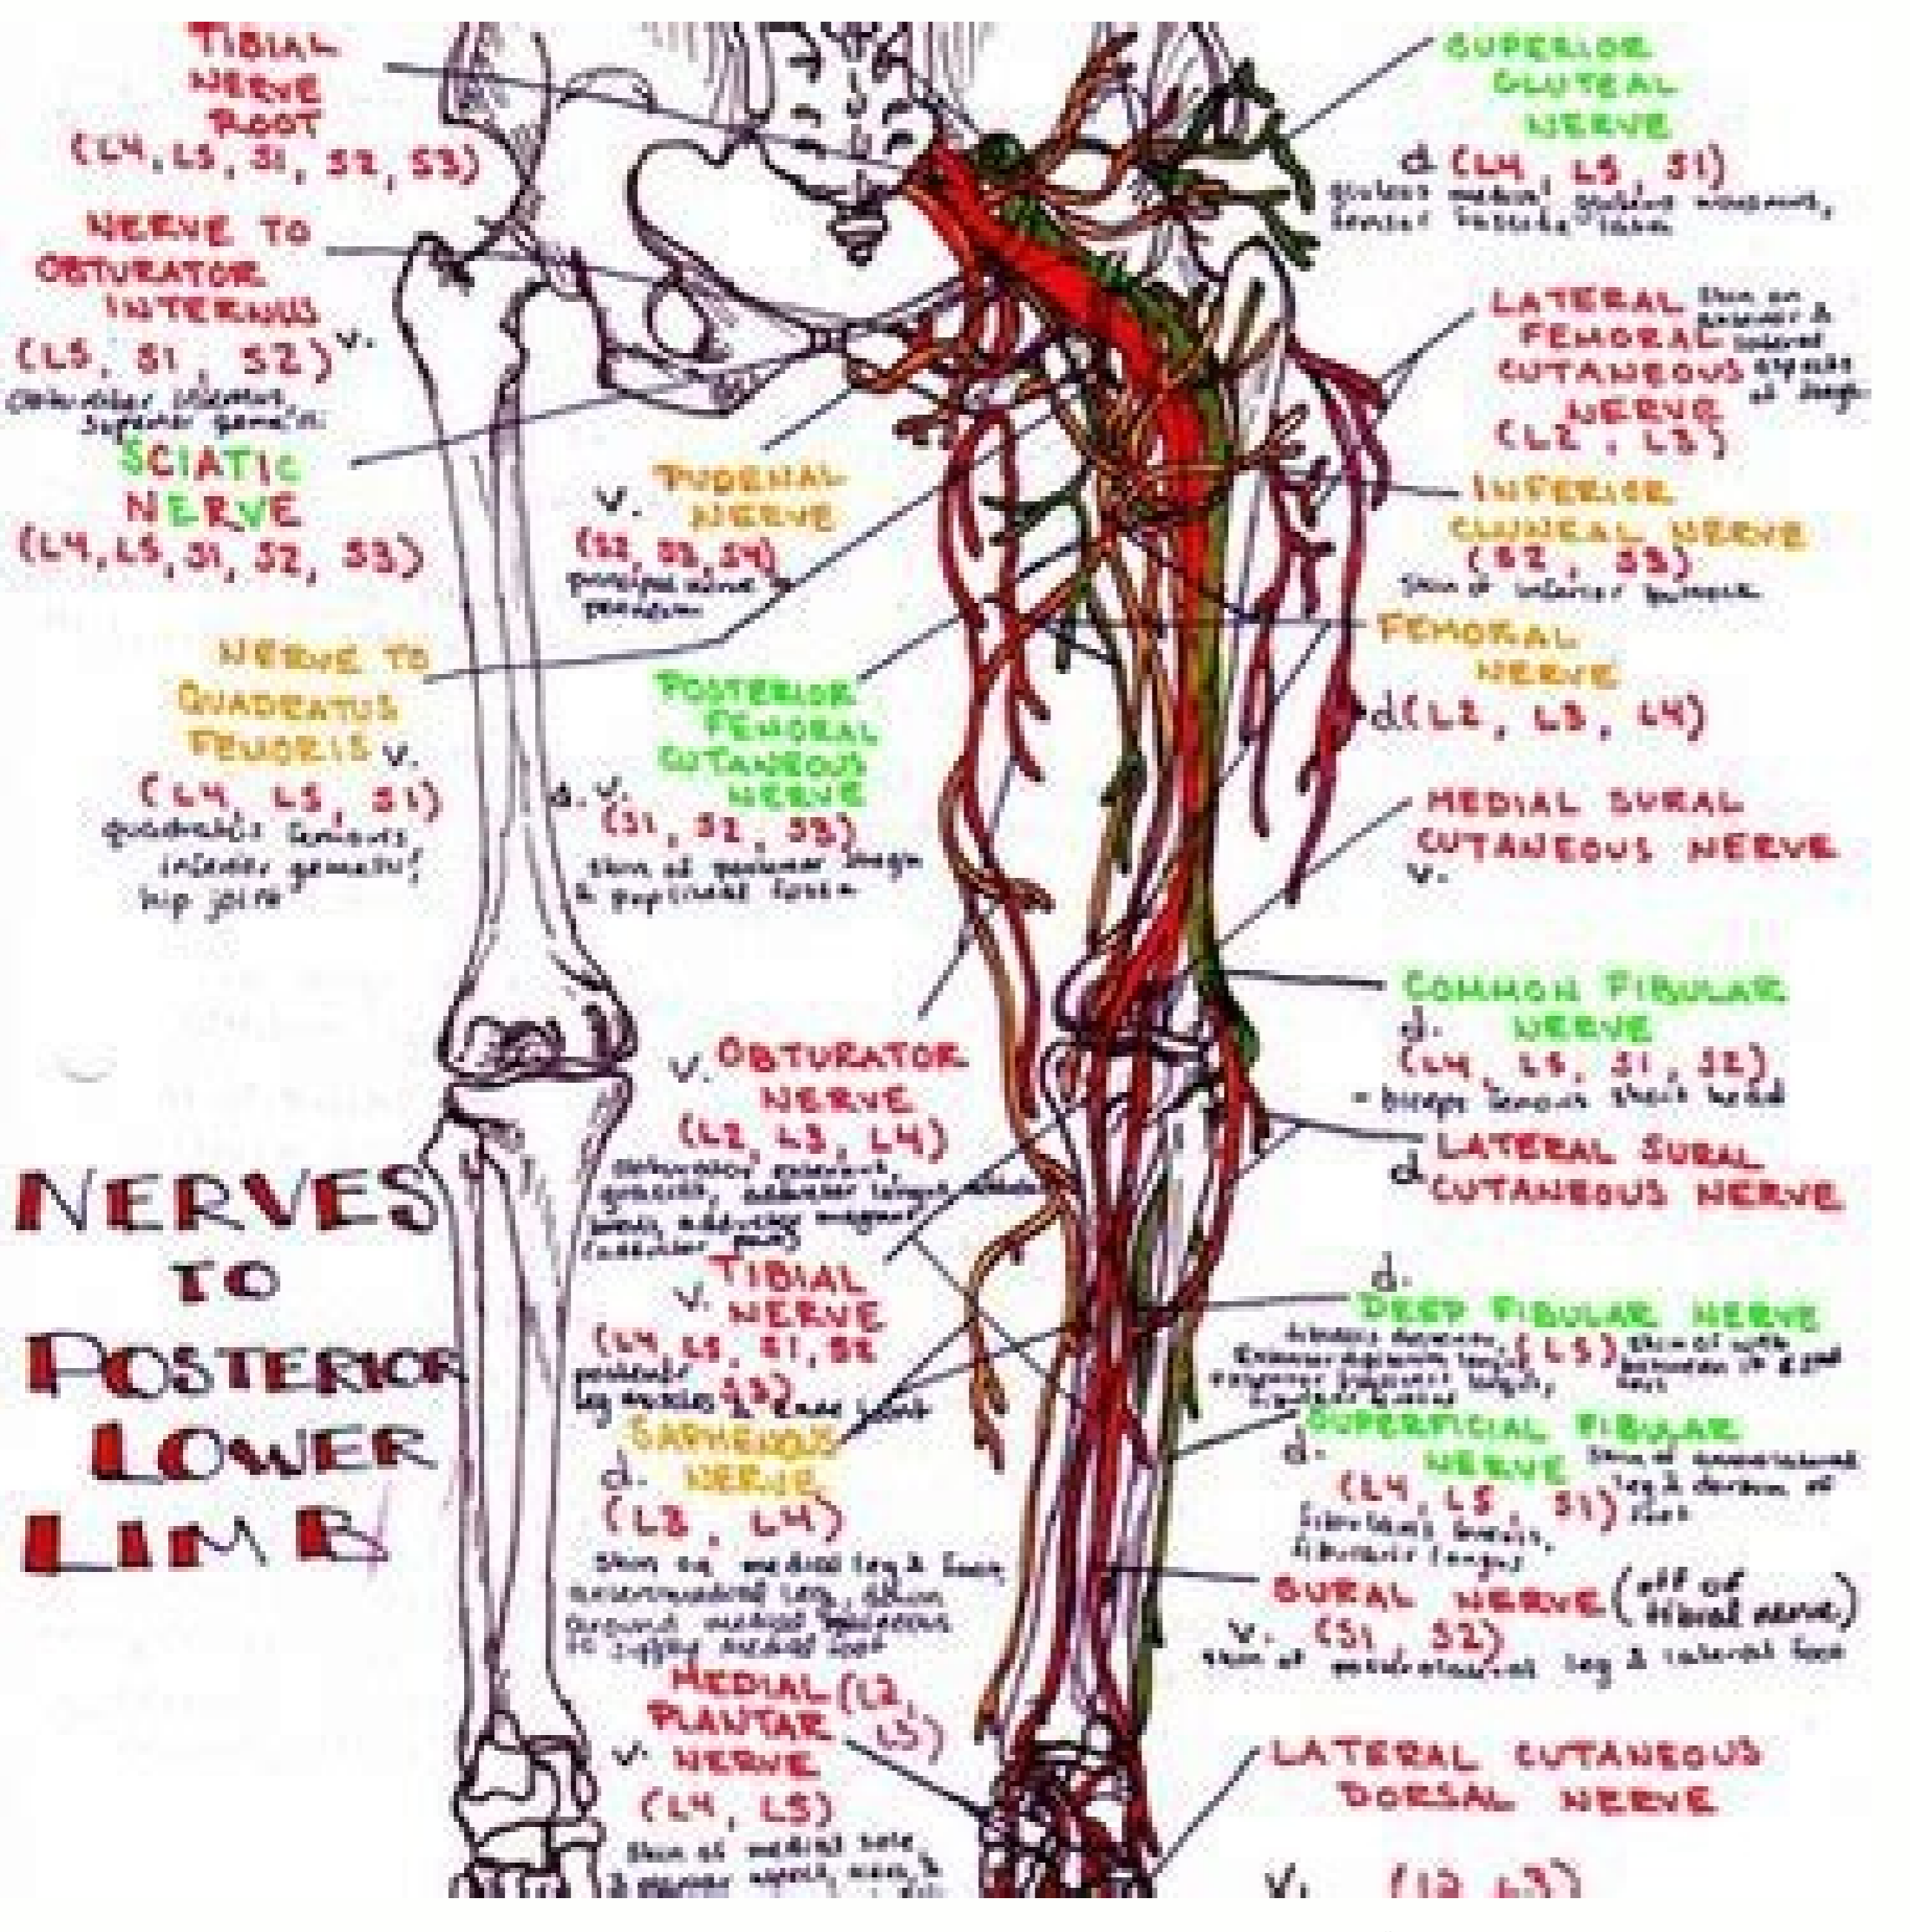 TIBIAL
NERVE
ROOT
(L4, L5, S1, S2, S3)
NERVE TO
OBTURATOR
INTERNUS
(L5, S1, S2) v.
obturator internus,
superior gemelli
SCIATIC
NERVE
(L4, L5, S1, S2, S3)
NERVE TO
QUADRATUS
FEMORIS v.
(L4, L5, S1)
quadratus femoris
inferior gemelli
hip joint
NERVES
TO
POSTERIOR
LOWER
LIMB
PUDENAL
v. NERVE
(S2, S3, S4)
principal nerve
perineum
POSTERIOR
FEMORAL
CUTANEOUS
NERVE
d. v.
(S1, S2, S3)
skin of posterior thigh
& popliteal fossa
v. OBTURATOR
NERVE
(L2, L3, L4)
obturator externus,
gracilis, adductor longus
adductor magnus
TIBIAL
v. NERVE
(L4, L5, S1, S2
posterior
leg muscles S3) & knee joint
SAPHENOUS
d. NERVE
(L3, L4)
skin on medial leg & foot,
anteromedial leg, down
around medial
to supply medial foot
MEDIAL (L2,
PLANTAR L3)
v. NERVE
(L4, L5)
skin of medial sole,
SUPERIOR
GLUTEAL
NERVE
d (L4, L5, S1)
gluteus medius, gluteus minimus,
tensor fasciae latae
LATERAL skin on
FEMORAL anterior & lateral
CUTANEOUS aspects
NERVE of thigh
(L2, L3)
INFERIOR
CLUNEAL NERVE
(S2, S3)
skin of inferior buttock
FEMORAL
NERVE
d(L2, L3, L4)
MEDIAL SURAL
CUTANEOUS NERVE
v.
COMMON FIBULAR
d. NERVE
(L4, L5, S1, S2)
- biceps femoris short head
LATERAL SURAL
d CUTANEOUS NERVE
d.
DEEP FIBULAR NERVE
(L5) skin of web
between 1st & 2nd
toes
SUPERFICIAL FIBULAR
d. NERVE skin of anterolateral
(L4, L5, S1) leg & dorsum of
foot
fibularis brevis,
fibularis longus
SURAL NERVE (off of
tibial nerve)
v. (S1, S2)
skin of posterolateral leg & lateral foot
LATERAL CUTANEOUS
DORSAL NERVE
v. (L2, L3)